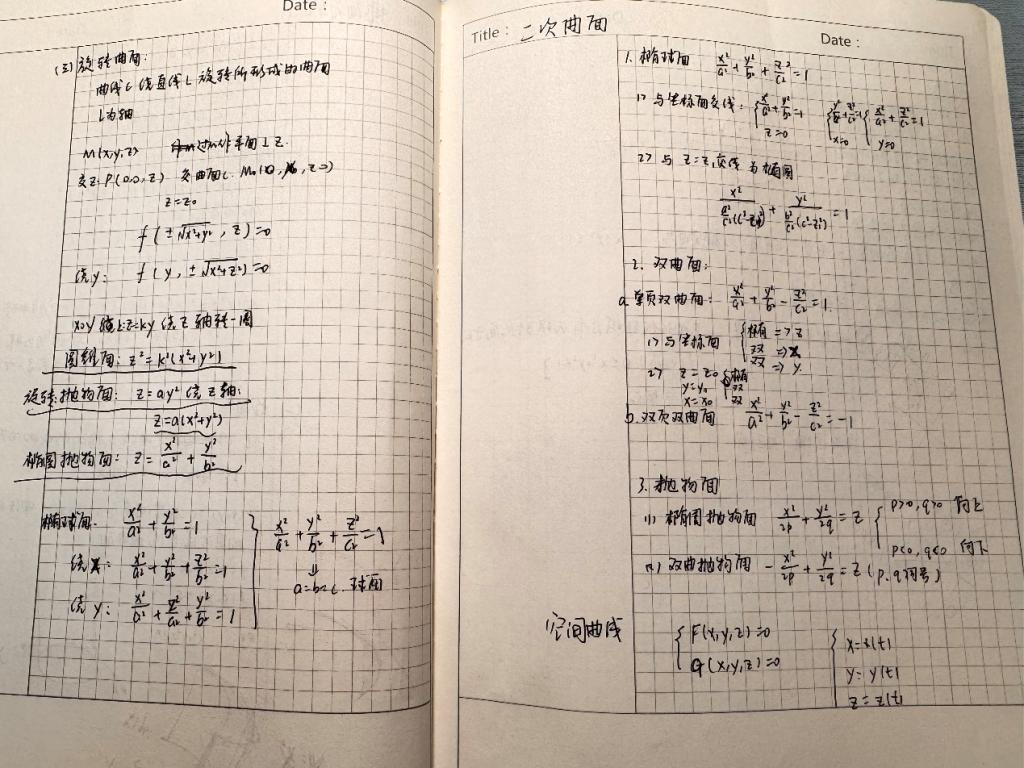 Date :
(三) 旋转曲面:
曲线 C 绕直线 L 旋转所形成的曲面
L为轴
M(x,y,z) 过M作平面⊥Z.
交Z: P(0,0,z) 交曲面C: M₀(0, y₀, z₀)
z=z₀
f(±√x²+y², z)=0
绕y: f(y, ±√x²+z²)=0
xoy 线L:z=ky 绕 z 轴转一周
圆锥面: z²=k²(x²+y²)
旋转抛物面: z=ay² 绕 z 轴:
z=a(x²+y²)
椭圆抛物面: z= x²/a² + y²/b²
椭球面: x²/a² + y²/b² =1
绕x: x²/a² + y²/b² + z²/b² =1
绕y: x²/a² + z²/a² + y²/b² =1
x²/a² + y²/b² + z²/c² =1
⇓
a=b=c. 球面
Title : 二次曲面
Date :
1. 椭球面 x²/a² + y²/b² + z²/c² =1
1> 与坐标面交线: { x²/a² + y²/b² =1 z=0 { y²/b² + z²/c² =1 x=0 { x²/a² + z²/c² =1 y=0
2> 与 z=z₁交线 为椭圆
x²/(a²/c²(c²-z₁²)) + y²/(b²/c²(c²-z₁²)) =1
2. 双曲面:
a. 单页双曲面: x²/a² + y²/b² - z²/c² =1.
1> 与坐标面 { 椭 => z 双 => x 双 => y
2> z=z₀ 椭
y=y₀ 双
x=x₀ 双
b. 双页双曲面 x²/a² + y²/b² - z²/c² =-1
3. 抛物面
(1) 椭圆抛物面 x²/2p + y²/2q = z { p>0, q>0 向上
p<0, q<0 向下
(2) 双曲抛物面 - x²/2p + y²/2q = z (p.q同号)
空间曲线
{ F(x,y,z)=0
G(x,y,z)=0
{ x=x(t)
y=y(t)
z=z(t)